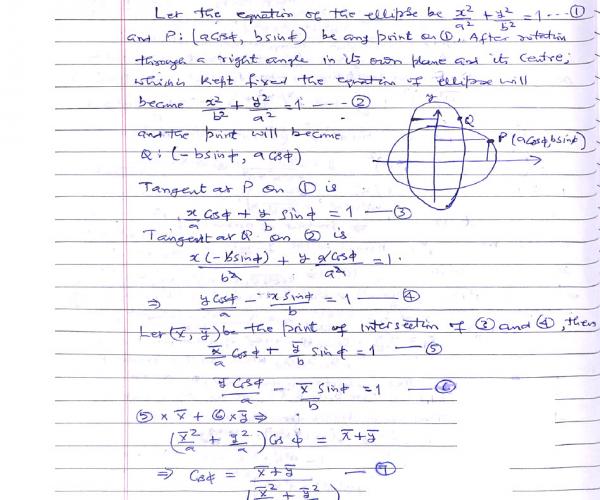 Let the equation of the ellipse be x²/a² + y²/b² = 1 --- ①
and P: (a cosϕ, b sinϕ) be any point on ①, After rotation
through a right angle in its own plane and its centre,
which is kept fixed the equation of ellipse will
become x²/b² + y²/a² = 1 ---- ②
and the point will become
Q: (-b sinϕ, a cosϕ)
y
Q
P (a cosϕ, b sinϕ)
Tangent at P on ① is
x/a cosϕ + y/b sinϕ = 1 — ③
Tangent at Q on ② is
x(-b sinϕ)/b² + y a cosϕ/a² = 1.
⇒ y cosϕ/a - x sinϕ/b = 1 — ④
Let (x̄, ȳ) be the point of intersection of ③ and ④, then
x̄/a cosϕ + ȳ/b sinϕ = 1 — ⑤
ȳ cosϕ/a - x̄/b sinϕ = 1 — ⑥
⑤ × x̄ + ⑥ × ȳ ⇒
(x̄²/a + ȳ²/a) cosϕ = x̄ + ȳ
⇒ cosϕ = (x̄ + ȳ)/(x̄² + ȳ²) — ⑦